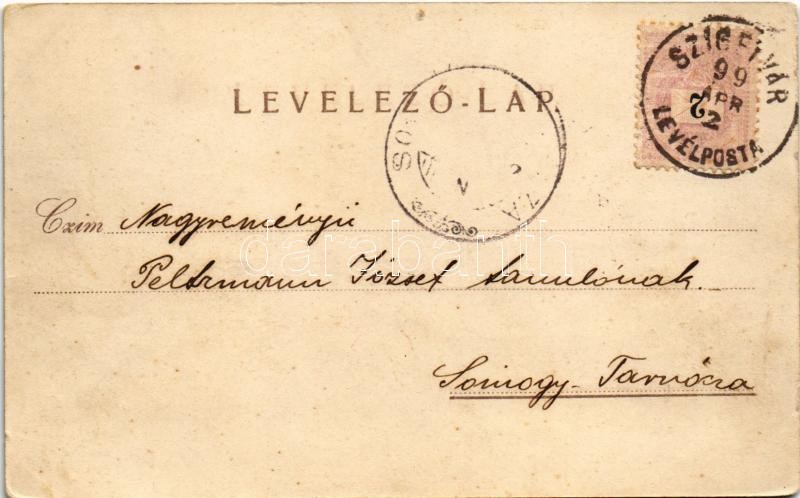 LEVELEZŐ-LAP.
SZIGETVÁR
99
APR
2
LEVÉLPOSTA
2
Czim Nagyreményü
Peltzmann József tanulónak.
Somogy-Tarnócza
darabanth